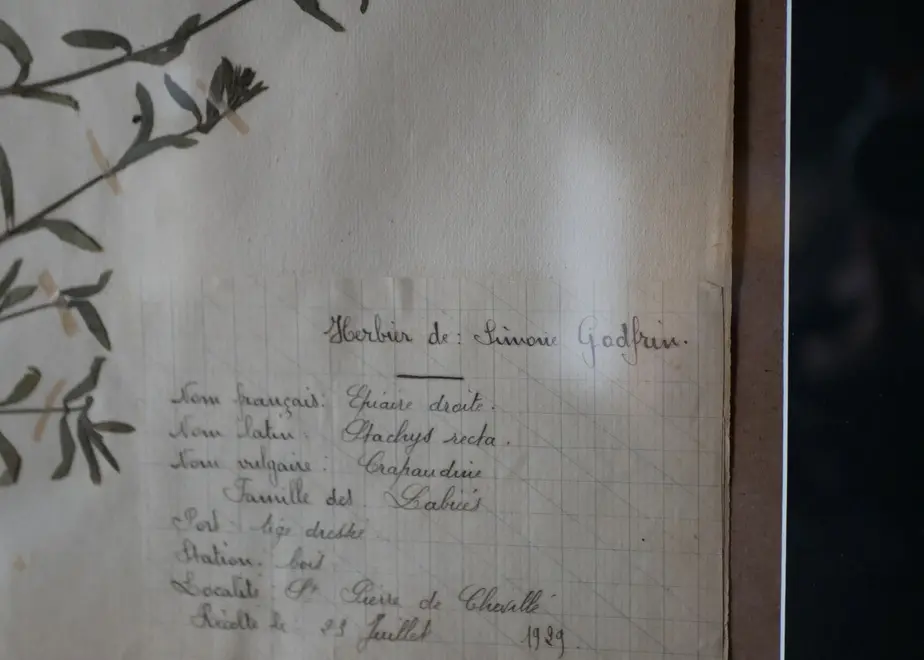 Herbier de : Simone Godfrin.
Nom français : Epiaire droite.
Nom latin : Stachys recta.
Nom vulgaire : Crapaudine
Famille des Labiés
Port : tige dressée
Station : bois
Localité : St Pierre de Chevillé
Récolté le : 23 Juillet 1929.